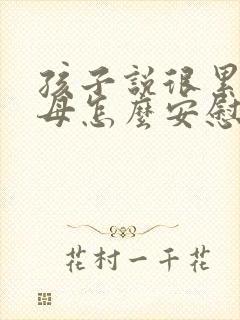 孩子說很累
母怎麼安慰
花村一千花